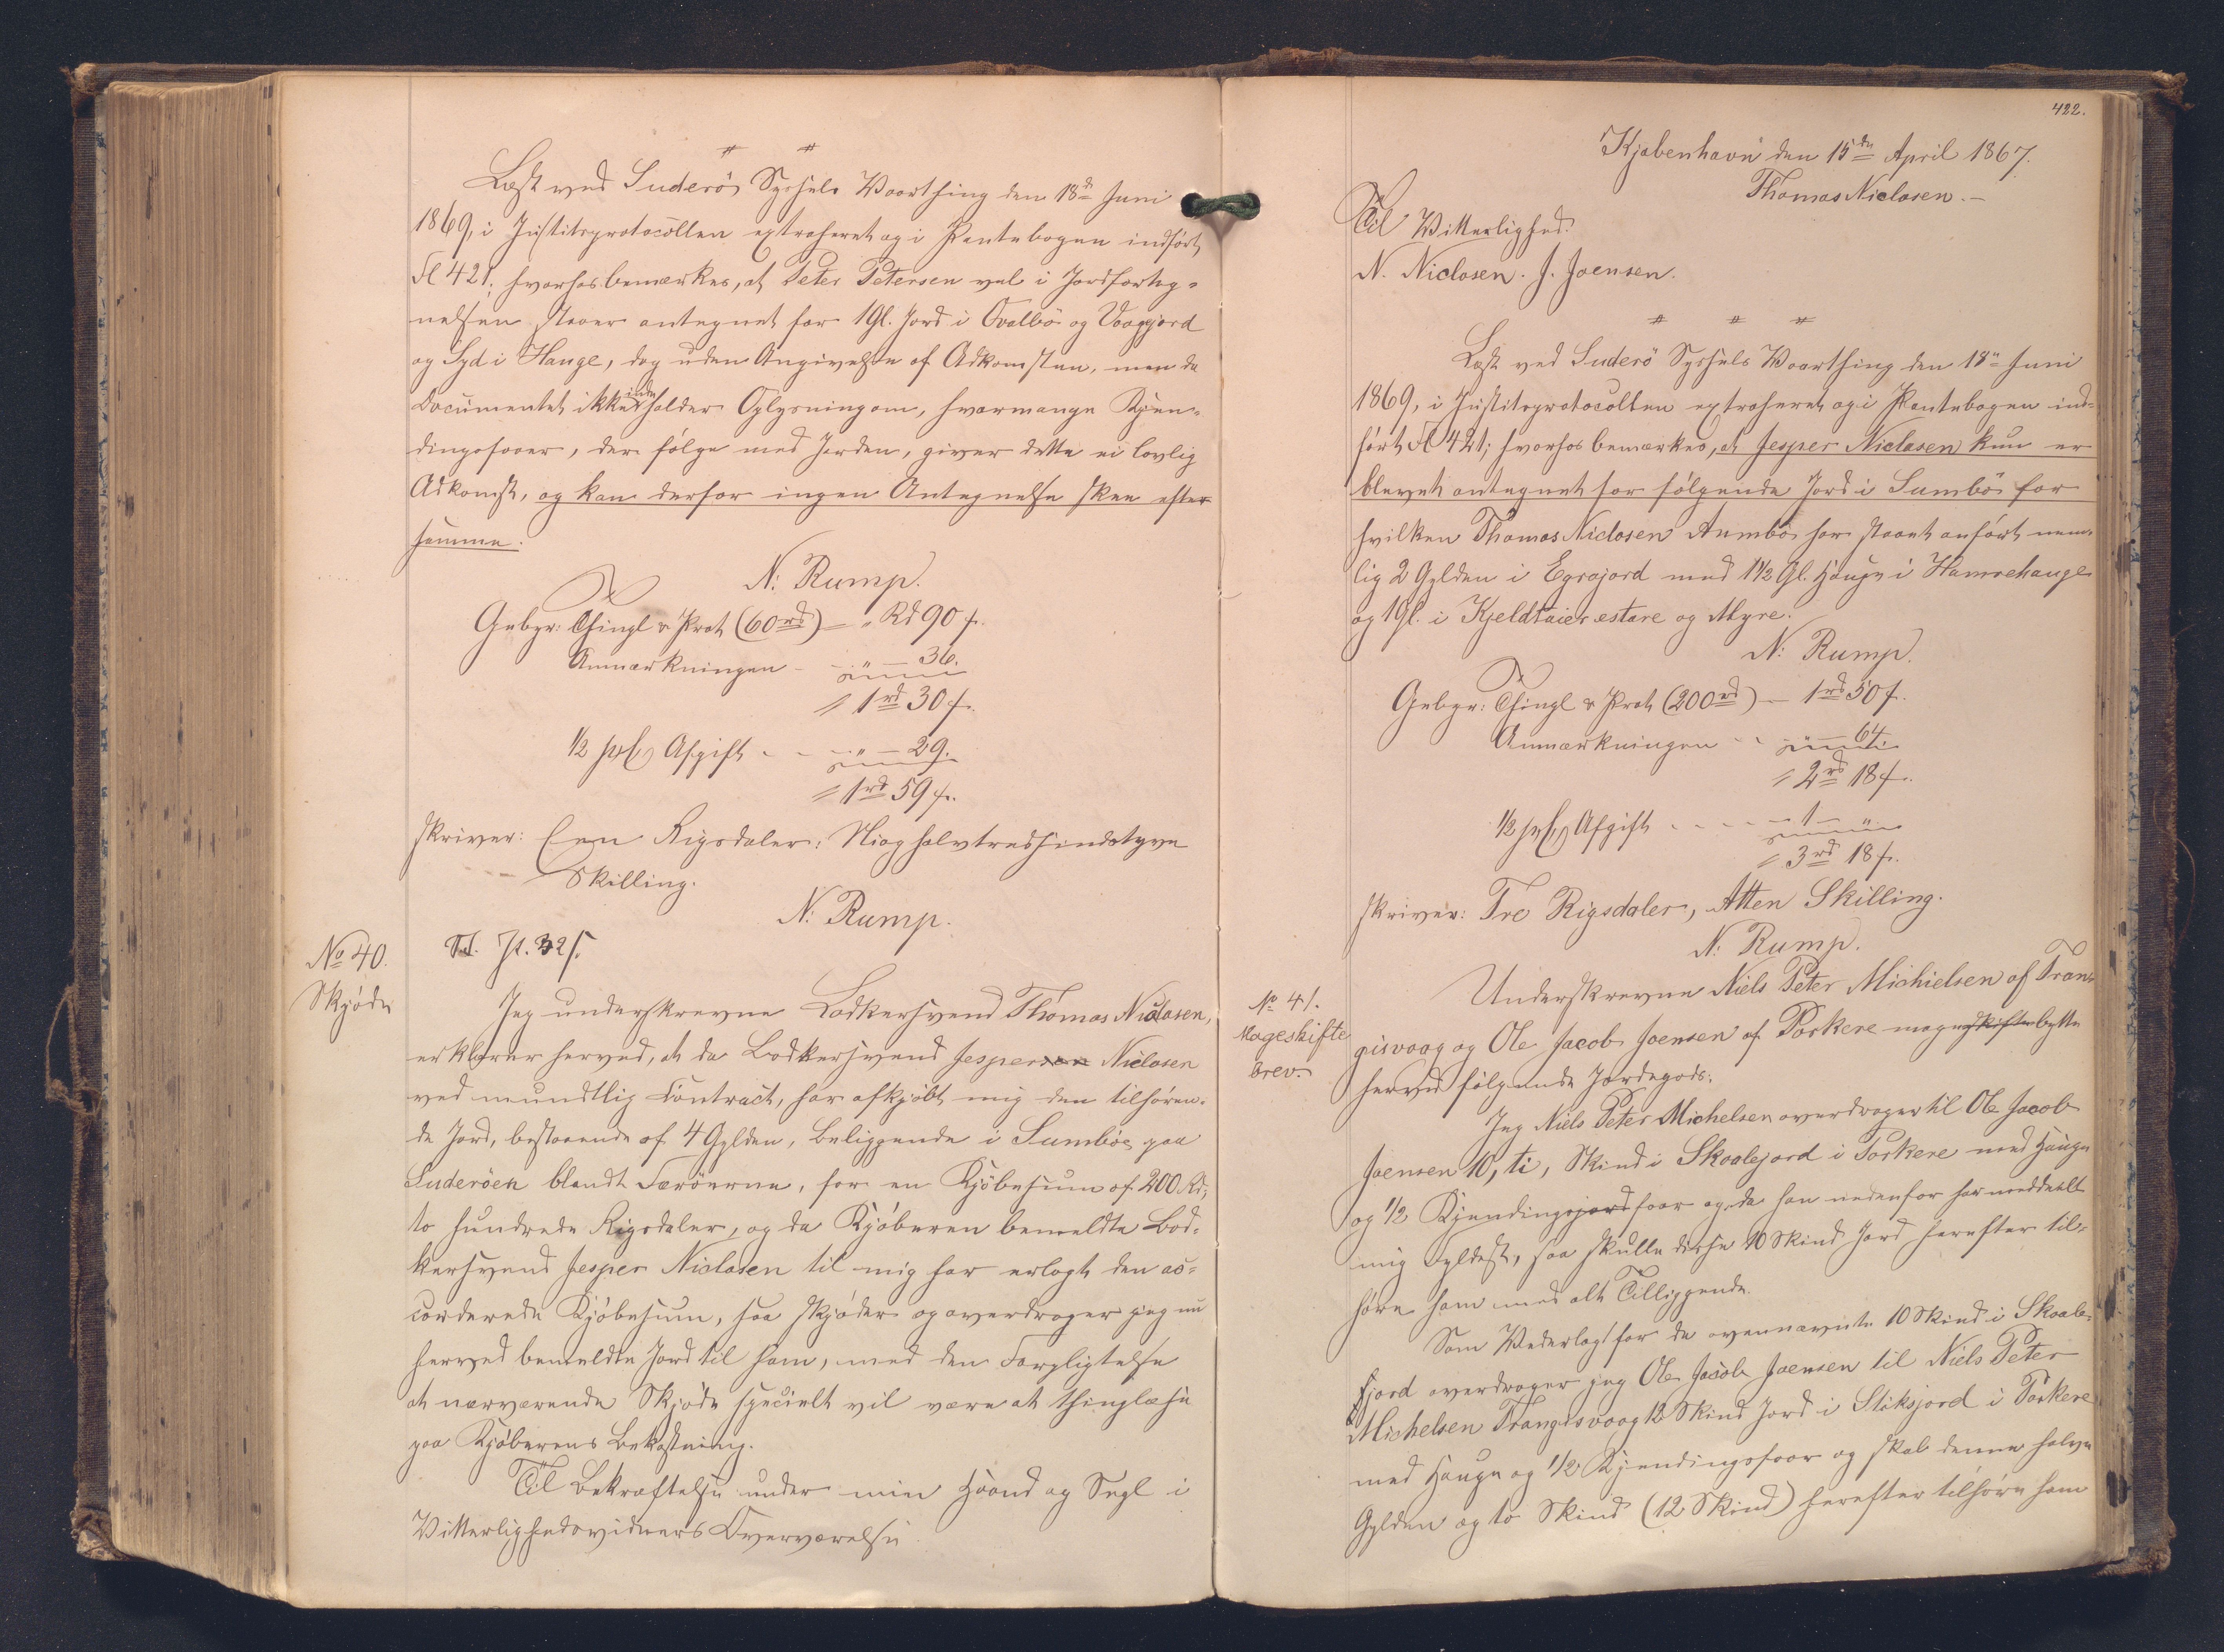 # #
Læst ved Suderö Syssels Vaarthing den 18de Juni
1869, i Justitsprotocollen extraheret og i Pantebogen indført
Fl 421; hvorhos bemærkes, at Peter Petersen vel i Jordforteg-
nelsen staaer antegnet for 1 Gl. Jord i Ovalbö og Vaagjord
og Syd i Hauge, dog uden Angivelse af Adkomsten, men da
Documentet ikke inde holder Oplysning om, hvormange Kjen-
dingsfaaer, der følge med Jorden, giver dette ei lovlig
Adkomst, og kan derfor ingen Antegnelse skee efter
samme.
N: Rump.
Gebyr: Thingl & Prot (60rd) — " Rd 90 f.
Anmærkningen - - " — 36.
1rd 30 f.
1/2 pCt Afgift - - - " — 29.
1rd 59 f.
skriver: Een Rigsdaler: Niog halvtredsindstyve
Skilling.
N: Rump.
No 40.
Skjøde
Fol. 325.
Jeg underskrevne Bødkersvend Thomas Niclasen,
erklærer herved, at da Bødkersvend Jespersen Niclasen
ved mundtlig Contract, har afkjøbt mig den tilhøren-
de Jord, bestaaende af 4 Gylden, beliggende i Sumböe paa
Suderöen blandt Færøerne, for en Kjøbesum af 200 Rd,
to hundrede Rigsdaler, og da Kjøberen bemeldte Bød-
kersvend Jesper Niclasen til mig har erlagt den ac-
corderede Kjøbesum, saa skjøder og overdrager jeg nu
herved bemeldte Jord til ham, med den Forpligtelse
at nærværende Skjøde specielt vil være at thinglæse
paa Kjøberens Bekostning.
Til Bekræftelse under min Haand og Segl i
Vitterlighedsvidners Overværelse
422.
Kjøbenhavn den 15de April 1867.
Thomas Niclasen.-
Til Vitterlighed:
N. Niclasen. J. Joensen.
# # #
Læst ved Suderö Syssels Vaarthing den 18de Juni
1869, i Justitsprotocollen extraheret og i Pantebogen ind-
ført Fl 421; hvorhos bemærkes, at Jesper Niclasen kun er
blevet antegnet for følgende Jord i Sumbö for
hvilken Thomas Niclasen Sumbö har staaet anført nem-
lig 2 Gylden i Egrajord med 1 1/2 Gl. Hauge i Hamrehauge
og 1 Gl. i Kjeldtaieræstare og Myre.
N: Rump.
Gebyr: Thingl & Prot (200rd) — 1rd 50 f.
Anmærkningen - - " — 64.
2rd 18 f.
1/2 pCt Afgift - - - - 1 — "
3rd 18 f.
skriver: Tre Rigsdaler, Atten Skilling.
N: Rump.
No 41.
Mageskifte
brev.
Underskrevne Niels Peter Michielsen af Tran-
gisvaag og Ole Jacob Joensen af Porkere mageskifte bytte
herved følgende Jordegods:
Jeg Niels Peter Michelsen overdrager til Ole Jacob
Joensen 10, ti, Skind i Skaalejord i Porkere med Hauge
og 1/2 Kjendingsjord faar og da han nedenfor har meddeelt
mig Fyldest, saa skulle disse 10 Skind Jord herefter til-
høre ham med alt Tilliggende.
Som Vederlag for de ovennævnte 10 Skind i Skaale-
jord overdrager jeg Ole Jacob Joensen til Niels Peter
Michelsen Trangisvaag 12 Skind Jord i Stiksjord i Porkere
med Hauge og 1/2 Kjendingsfaar og skal denne halve
Gylden og to Skind (12 Skind) herefter tilhøre ham